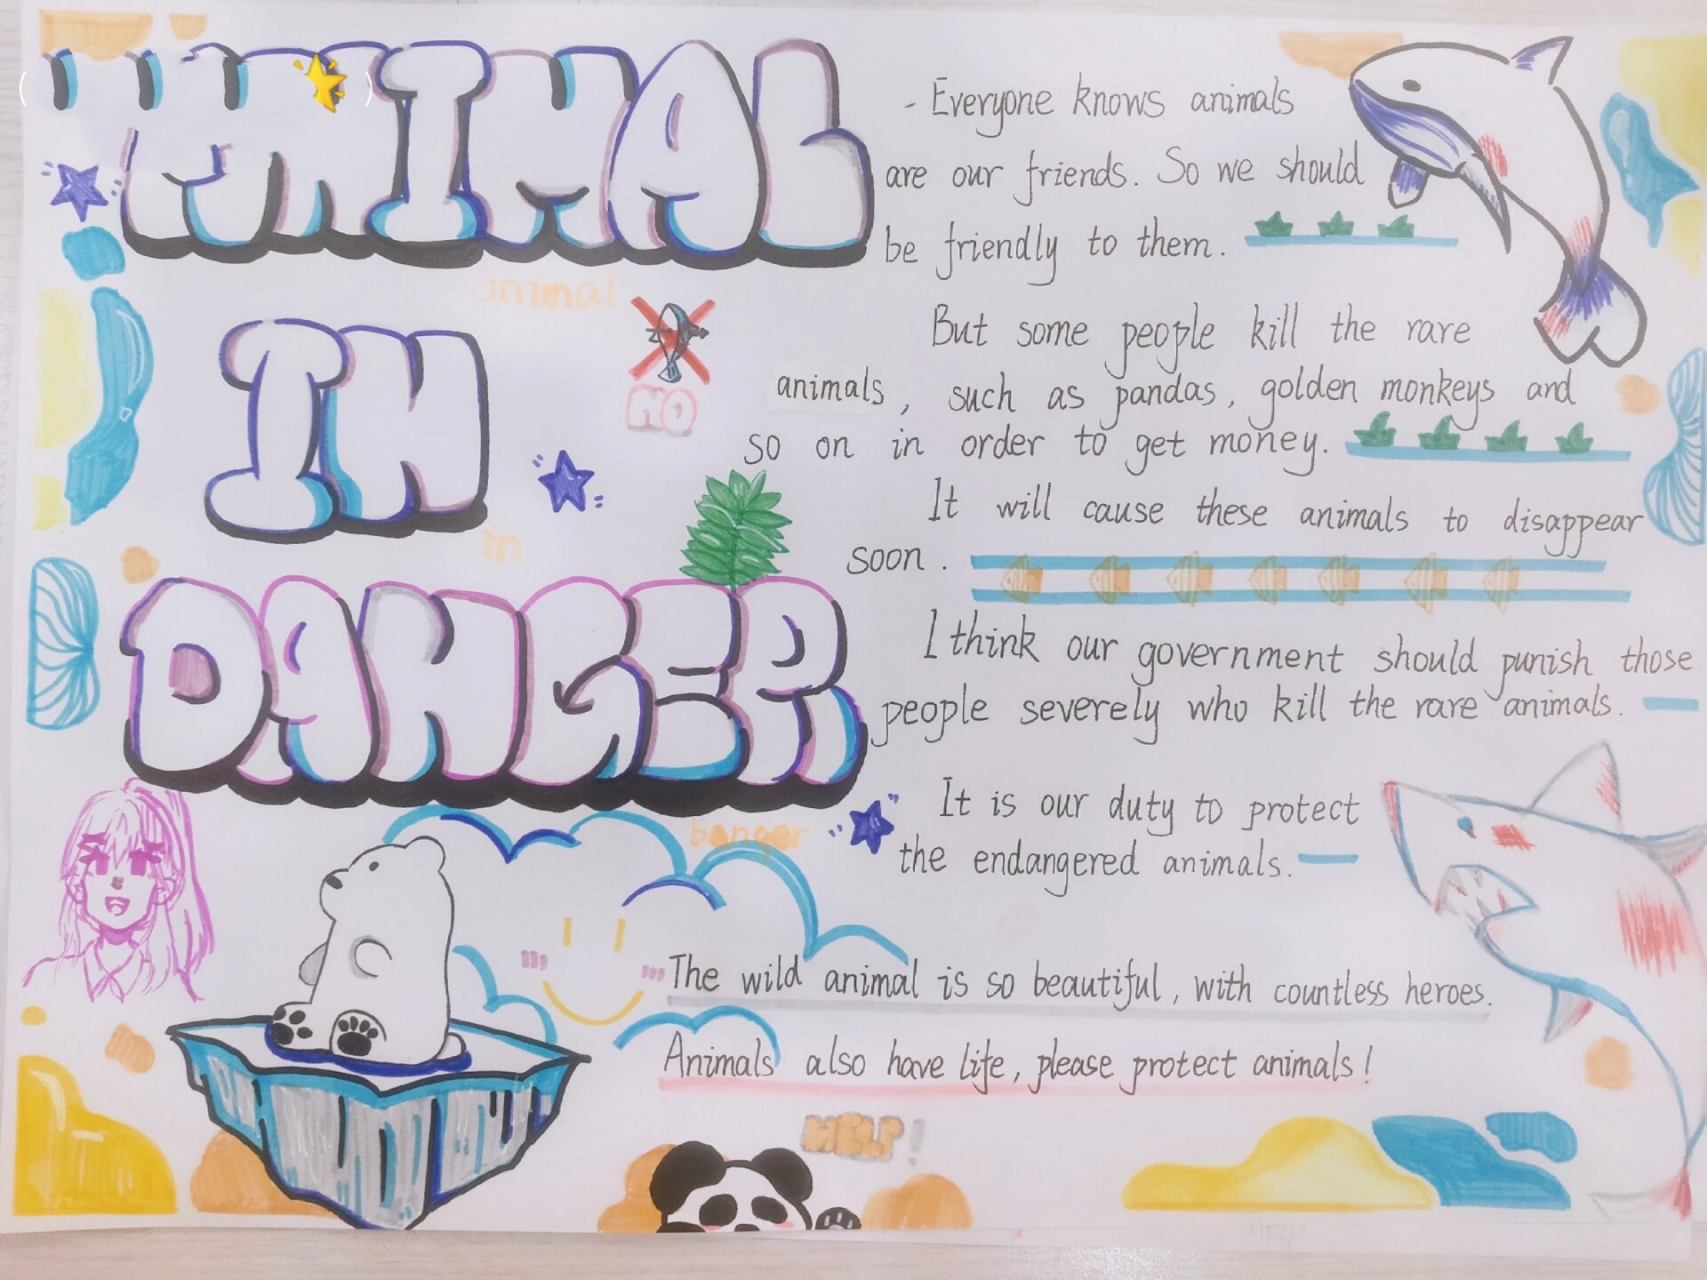 ANIMAL
animal
IN
in
NO
DANGER
banger
- Everyone knows animals
are our friends. So we should
be friendly to them.
But some people kill the rare
animals, such as pandas, golden monkeys and
so on in order to get money.
It will cause these animals to disappear
soon.
I think our government should punish those
people severely who kill the rare animals.
It is our duty to protect
the endangered animals.
The wild animal is so beautiful, with countless heroes.
Animals also have life, please protect animals!
HELP!